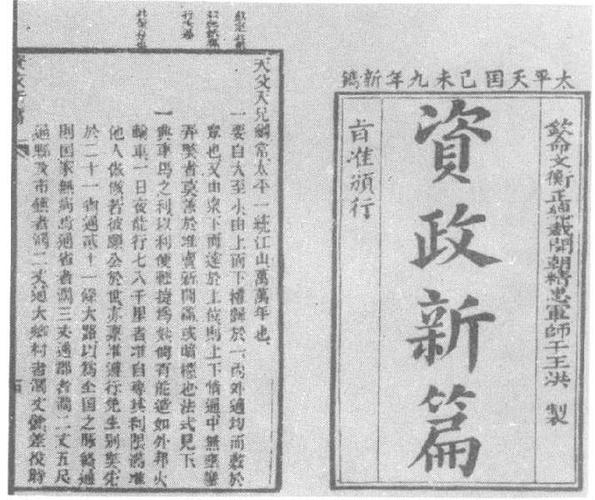 太平天囯己未九年新鐫
欽命文衡正總裁開朝精忠軍師干王洪 製
資政新篇
旨准頒行
天父天兄綱常太平一統江山萬萬年也
一要自大至小由上而下權歸於一內外適均而敷於
眾也又由眾下而達於上位則上下情通中無壅塞
弄弊者莫善於准賣新聞篇或暗櫃也法式見下
一興車馬之利以利便輕捷為妙倘有能造如外邦火
輪車一日夜能行七八千里者准自專其利限滿准
他人倣做若彼願公於世亦稟准遵行免生別弊先
於二十一省通貳十一條大路以為全囯之脈絡通
則囯家無病焉通省者濶三丈通郡者濶二丈五尺
通縣及市鎮者濶二丈通大鄉村者濶丈餘差役時